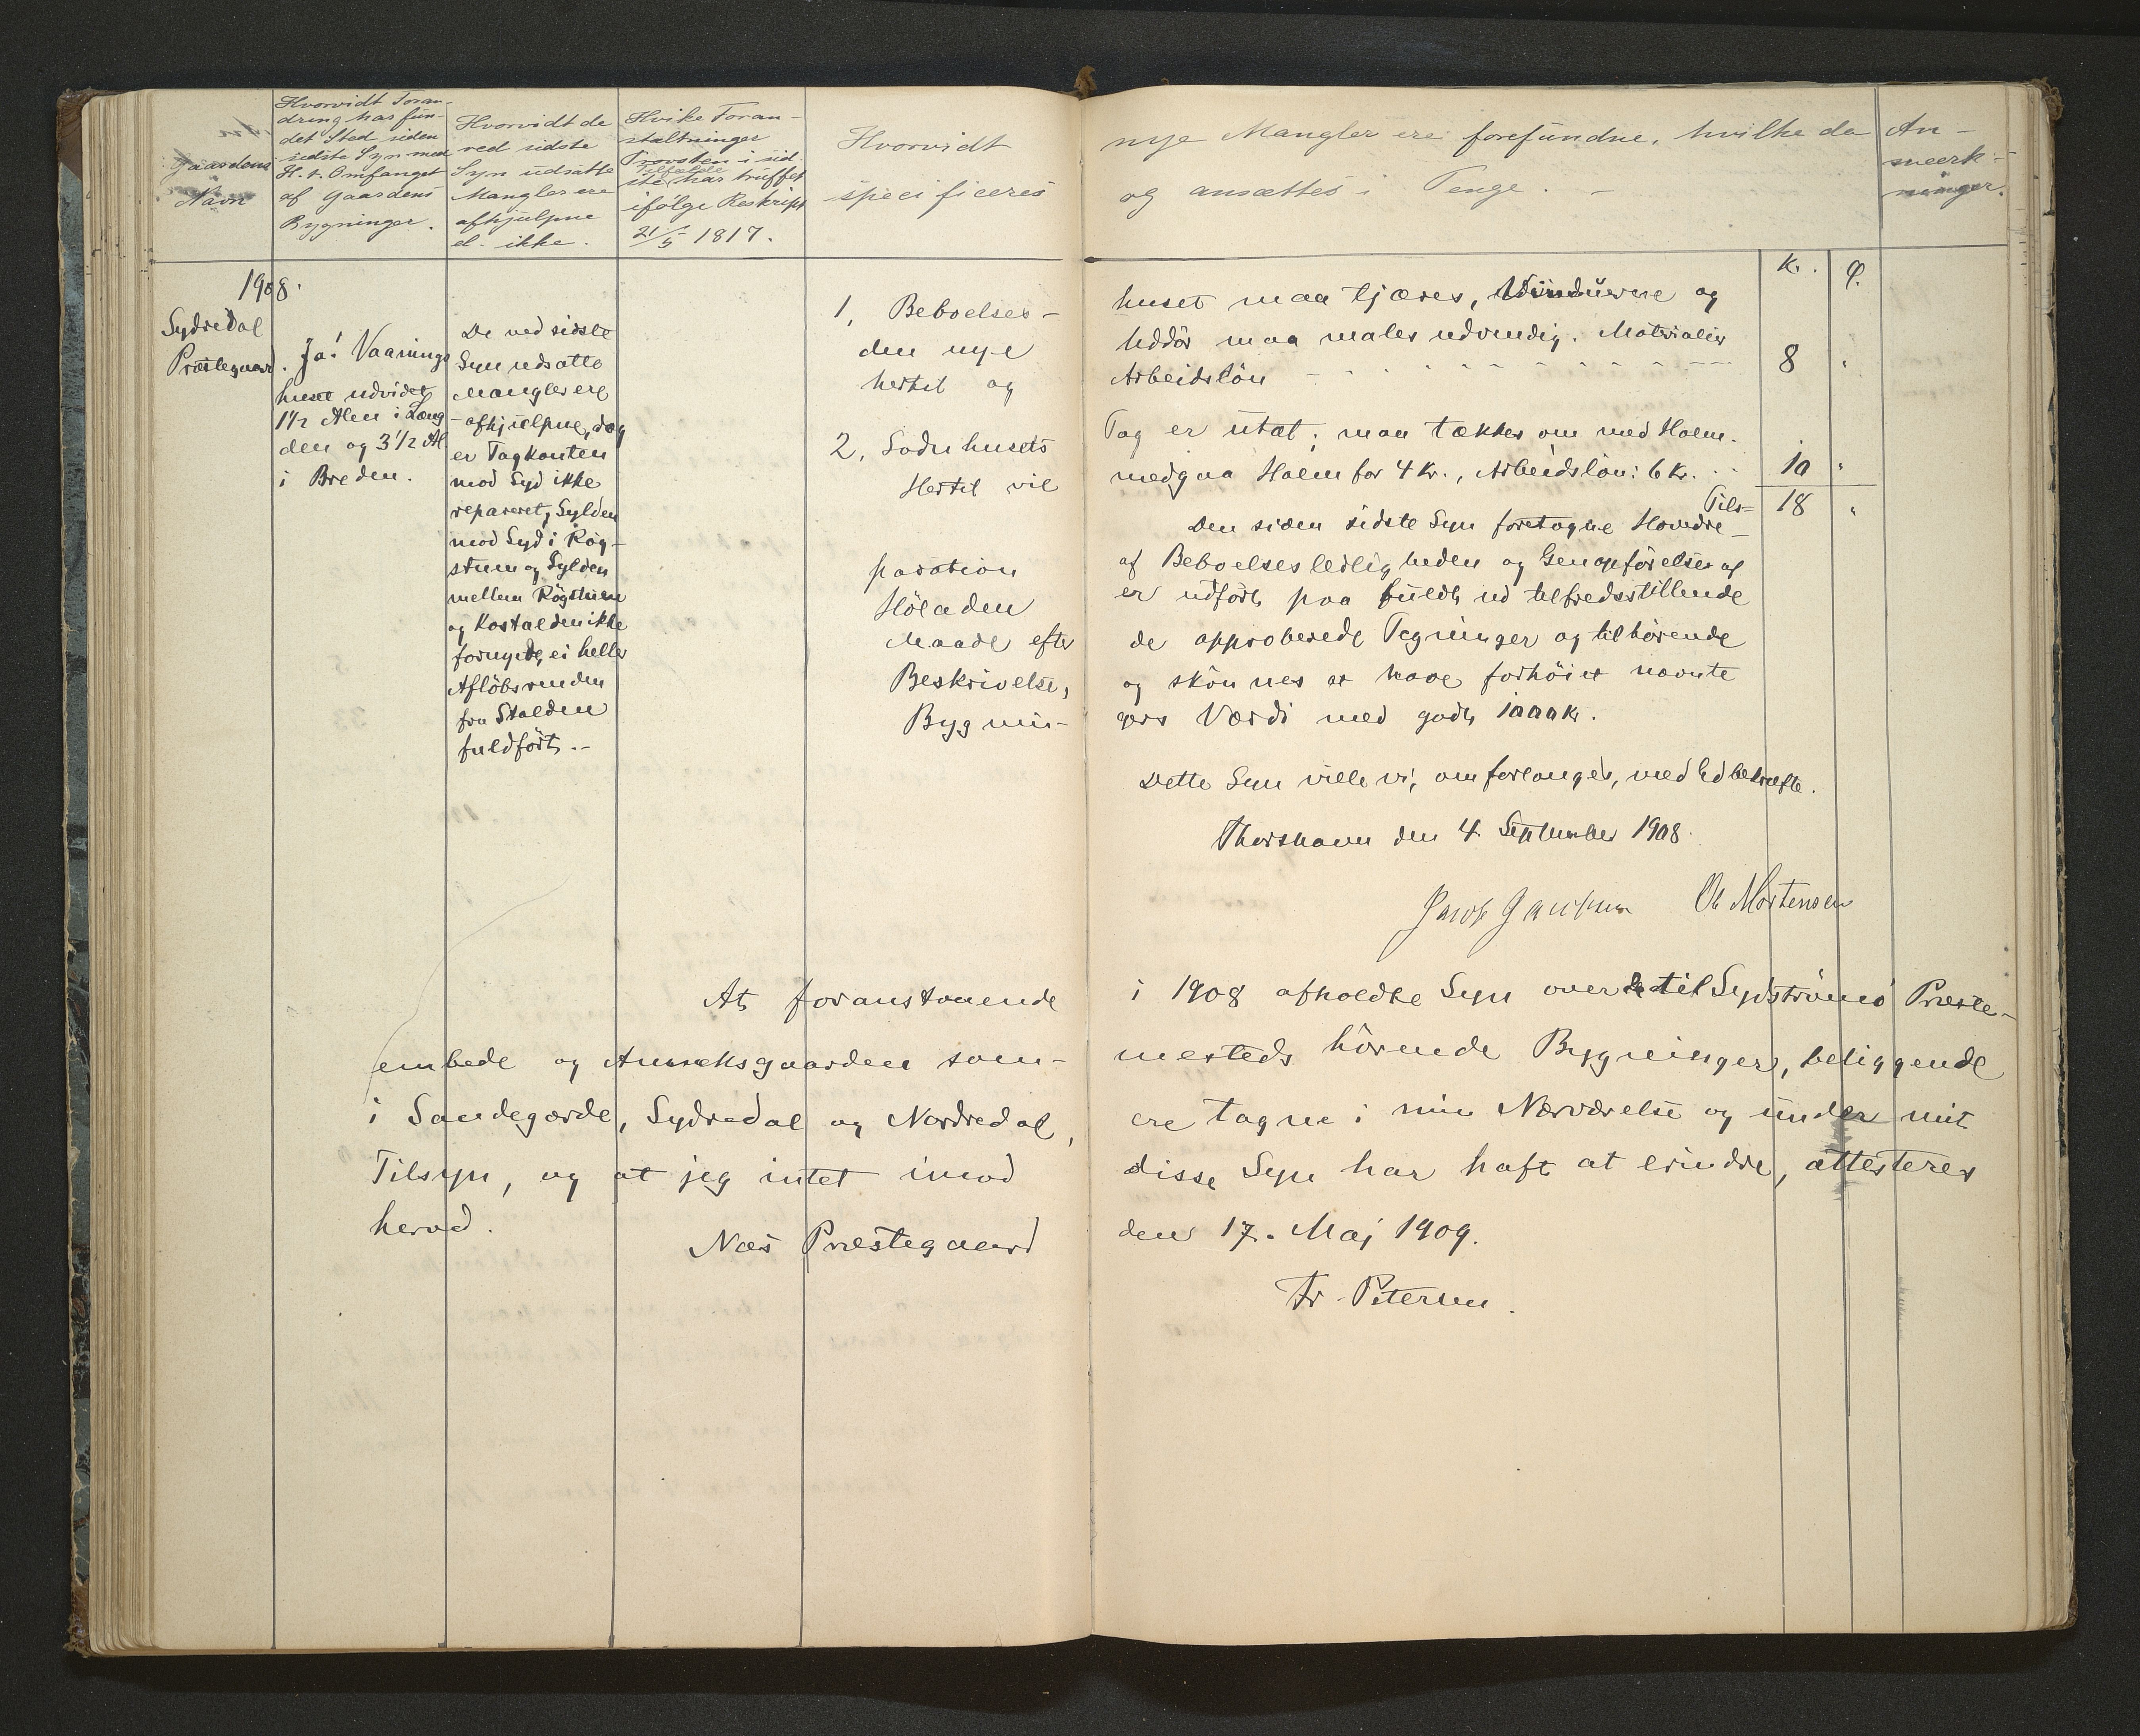 Gaardens
Navn
Hvorvidt Foran-
dring har fun-
det Sted siden
sidste Syn med
H. t. Omfanget
af Gaardens
Bygninger.
Hvorvidt de
ved sidste
Syn udsatte
Mangler ere
afhjulpne
el. ikke.
Hvike Foran-
staltninger
Provsten i sid-
ste Tilfælde har truffet
ifølge Reskript
21/5 1817.
Hvorvidt nye Mangler ere forefundne, hvilke da
specificeres og ansættes i Penge. -
An-
mærk-
ninger.
1908.
Sydredal
Præstegaard.
Ja! Vaanings
huset udvidet
1 1/2 Alen i Læng
den og 3 1/2 Al
i Breden.
De ved sidste
Syn udsatte
Mangler ere
afhjulpne, dog
er Tagkanten
mod Syd ikke
repareret, Sylden
mod Syd i Røg-
stuen og Sylden
mellem Røgstuen
og Kostalden ikke
fornyede, ei heller
Afløbsrenden
fra Stalden
fuldført. -
Kr. Ø.
1, Beboelses- huset maa tjæres, Vinduerne og
den nye Uddør maa males udvendig. Materialier
hertil og Arbeidsløn - - - 8 "
2, Sodnhusets Tag er utæt; maa tækkes om med Halm.
Hertil vil medgaa Halm for 4 Kr., Arbeidsløn: 6 Kr. 10 "
Tils= 18 "
Den siden sidste Syn foretagne Hovedre-
paration af Beboelsesleiligheden og Genopførelse af
Høladen er udført paa fuldt ud tilfredsstillende
Maade efter de approberede Tegninger og tilhørende
Beskrivelse, og skønnes at have forhøiet nævnte
Bygnin- gers Værdi med godt 1000 Kr.
Dette Syn ville vi, om forlanges, med Ed bekræfte.
Thorshavn den 4. September 1908.
Jacob Jacobsen Ole Mortensen
At foranstaaende i 1908 afholdte Syn over de til Sydstrømø Præste-
embede og Annexgaarden som- mesteds hørende Bygninger, beliggende
i Sandegærde, Sydredal og Nordredal, ere tagne i min Nærværelse og under mit
Tilsyn, og at jeg intet imod disse Syn har haft at erindre, attesteres
herved.
Næs Præstegaard den 17. Maj 1909.
Fr. Petersen.